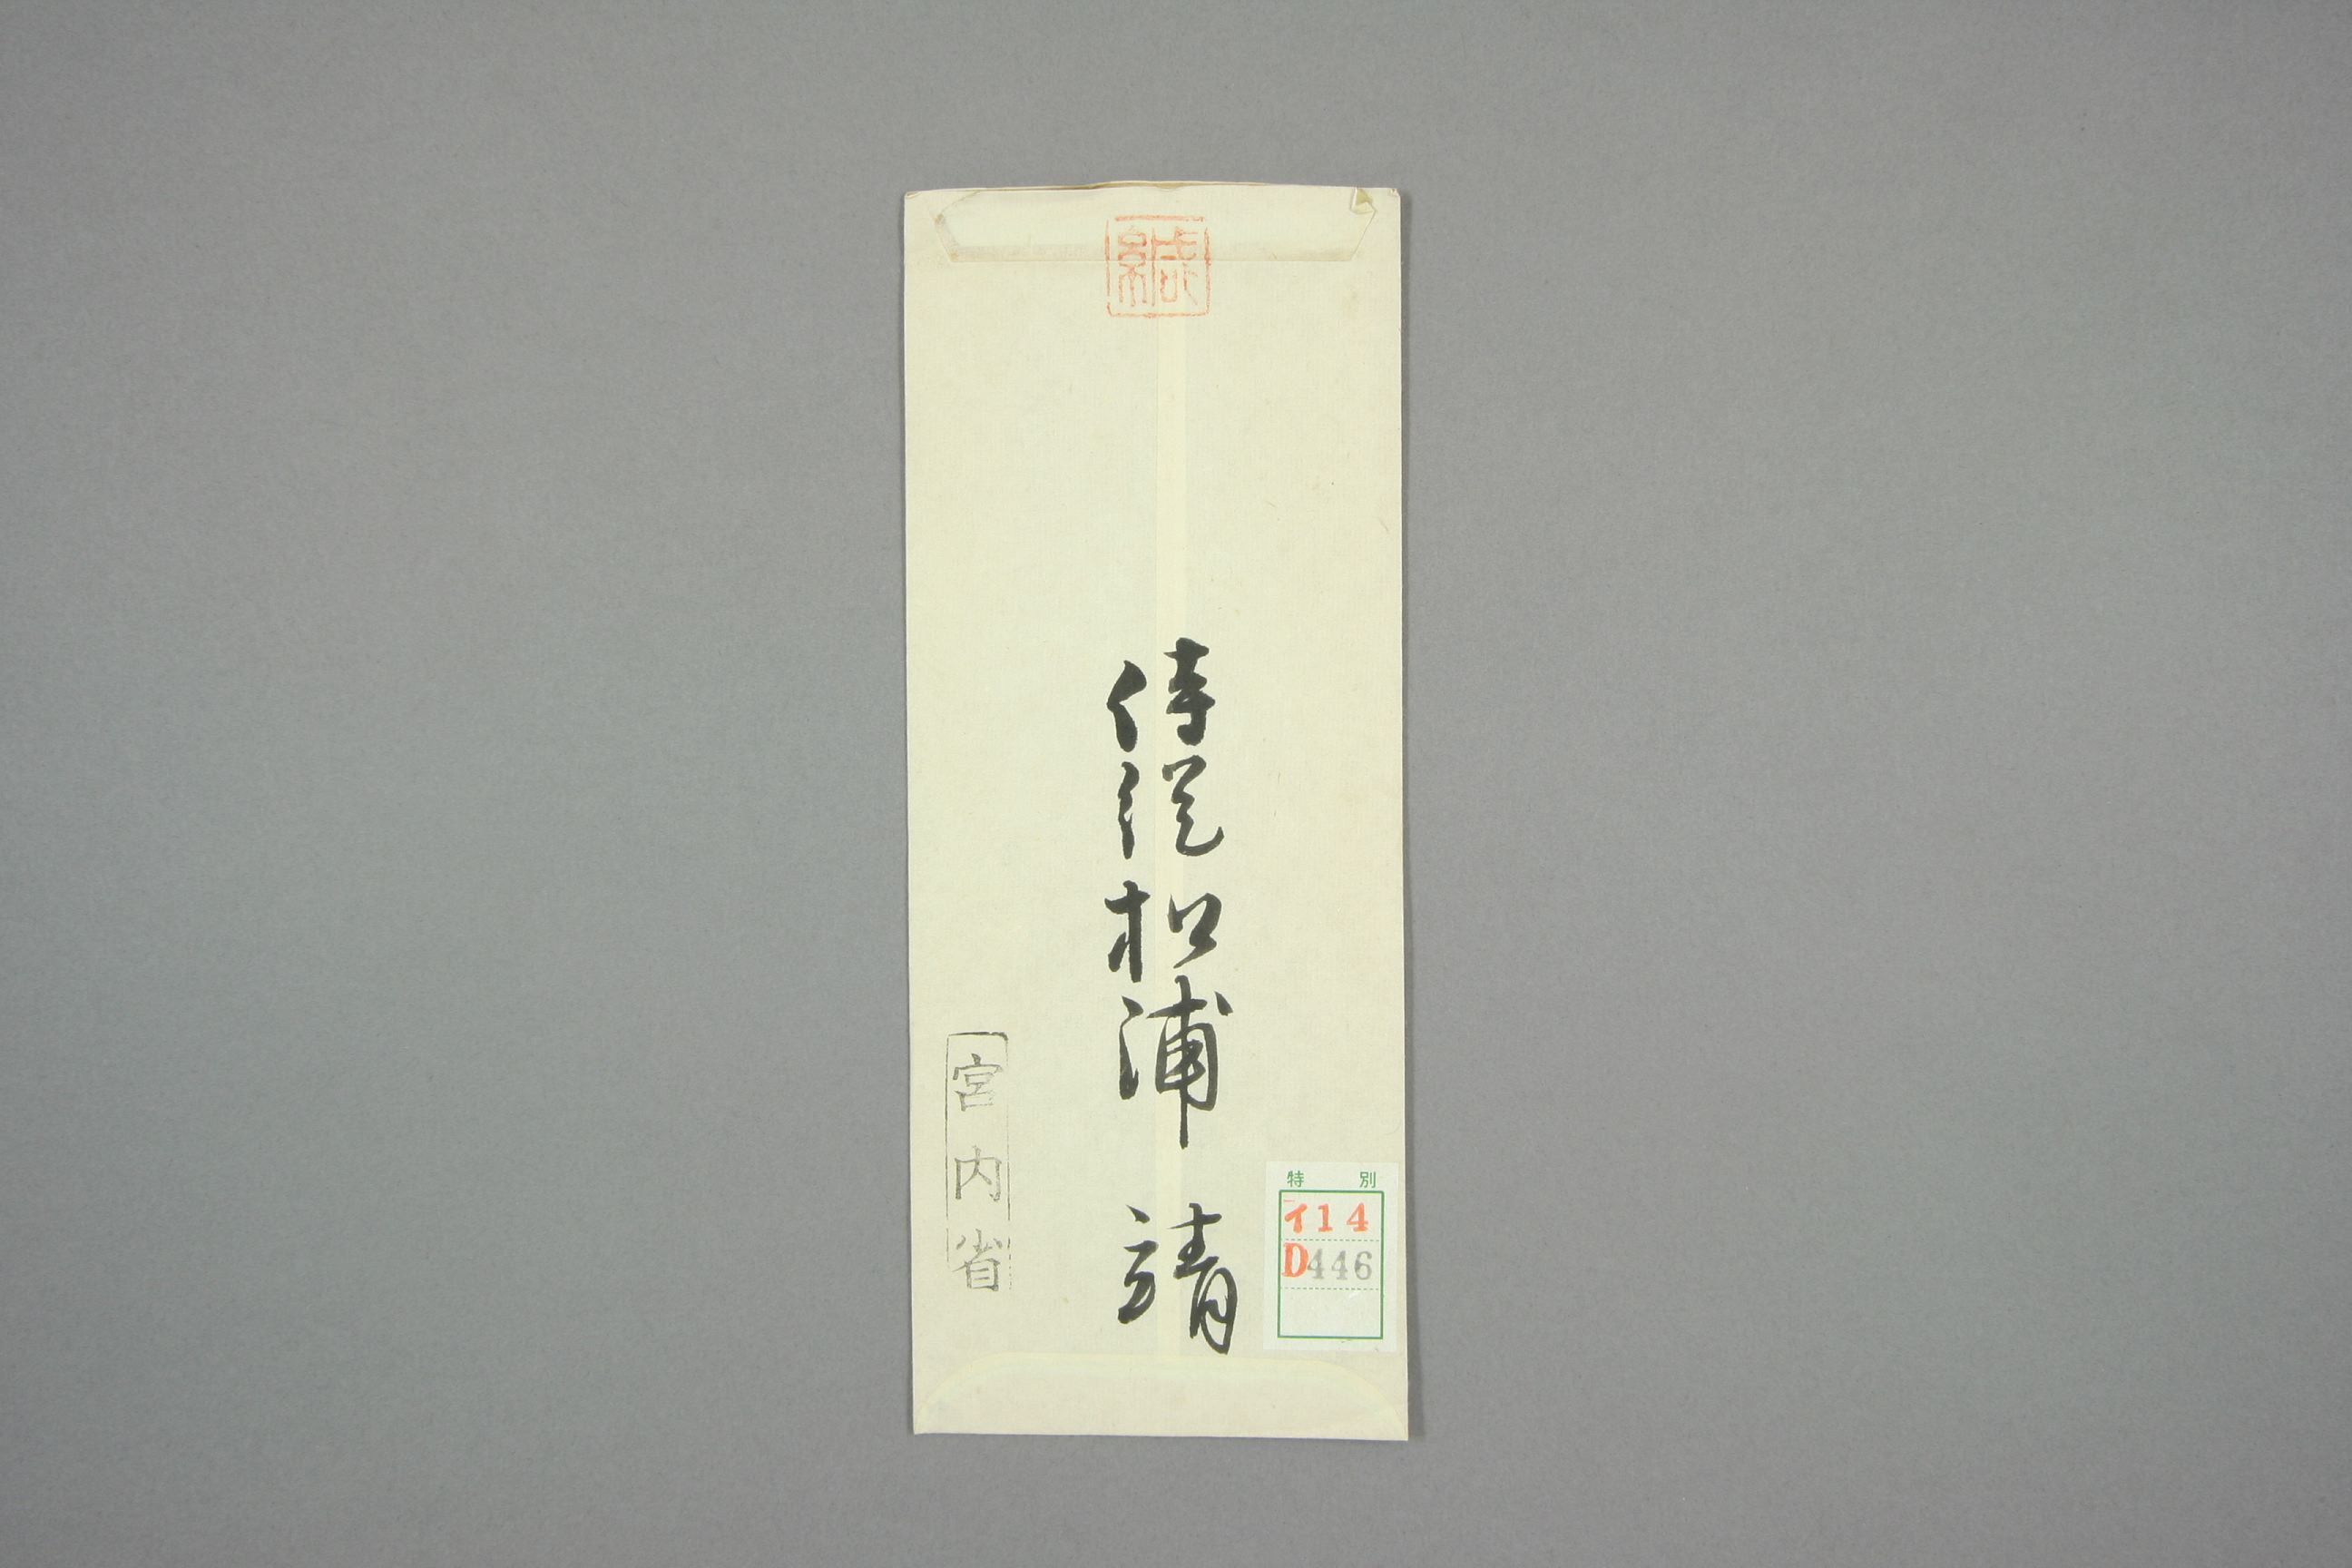 緘
侍從松浦 靖
宮内省
特別
イ14
D446